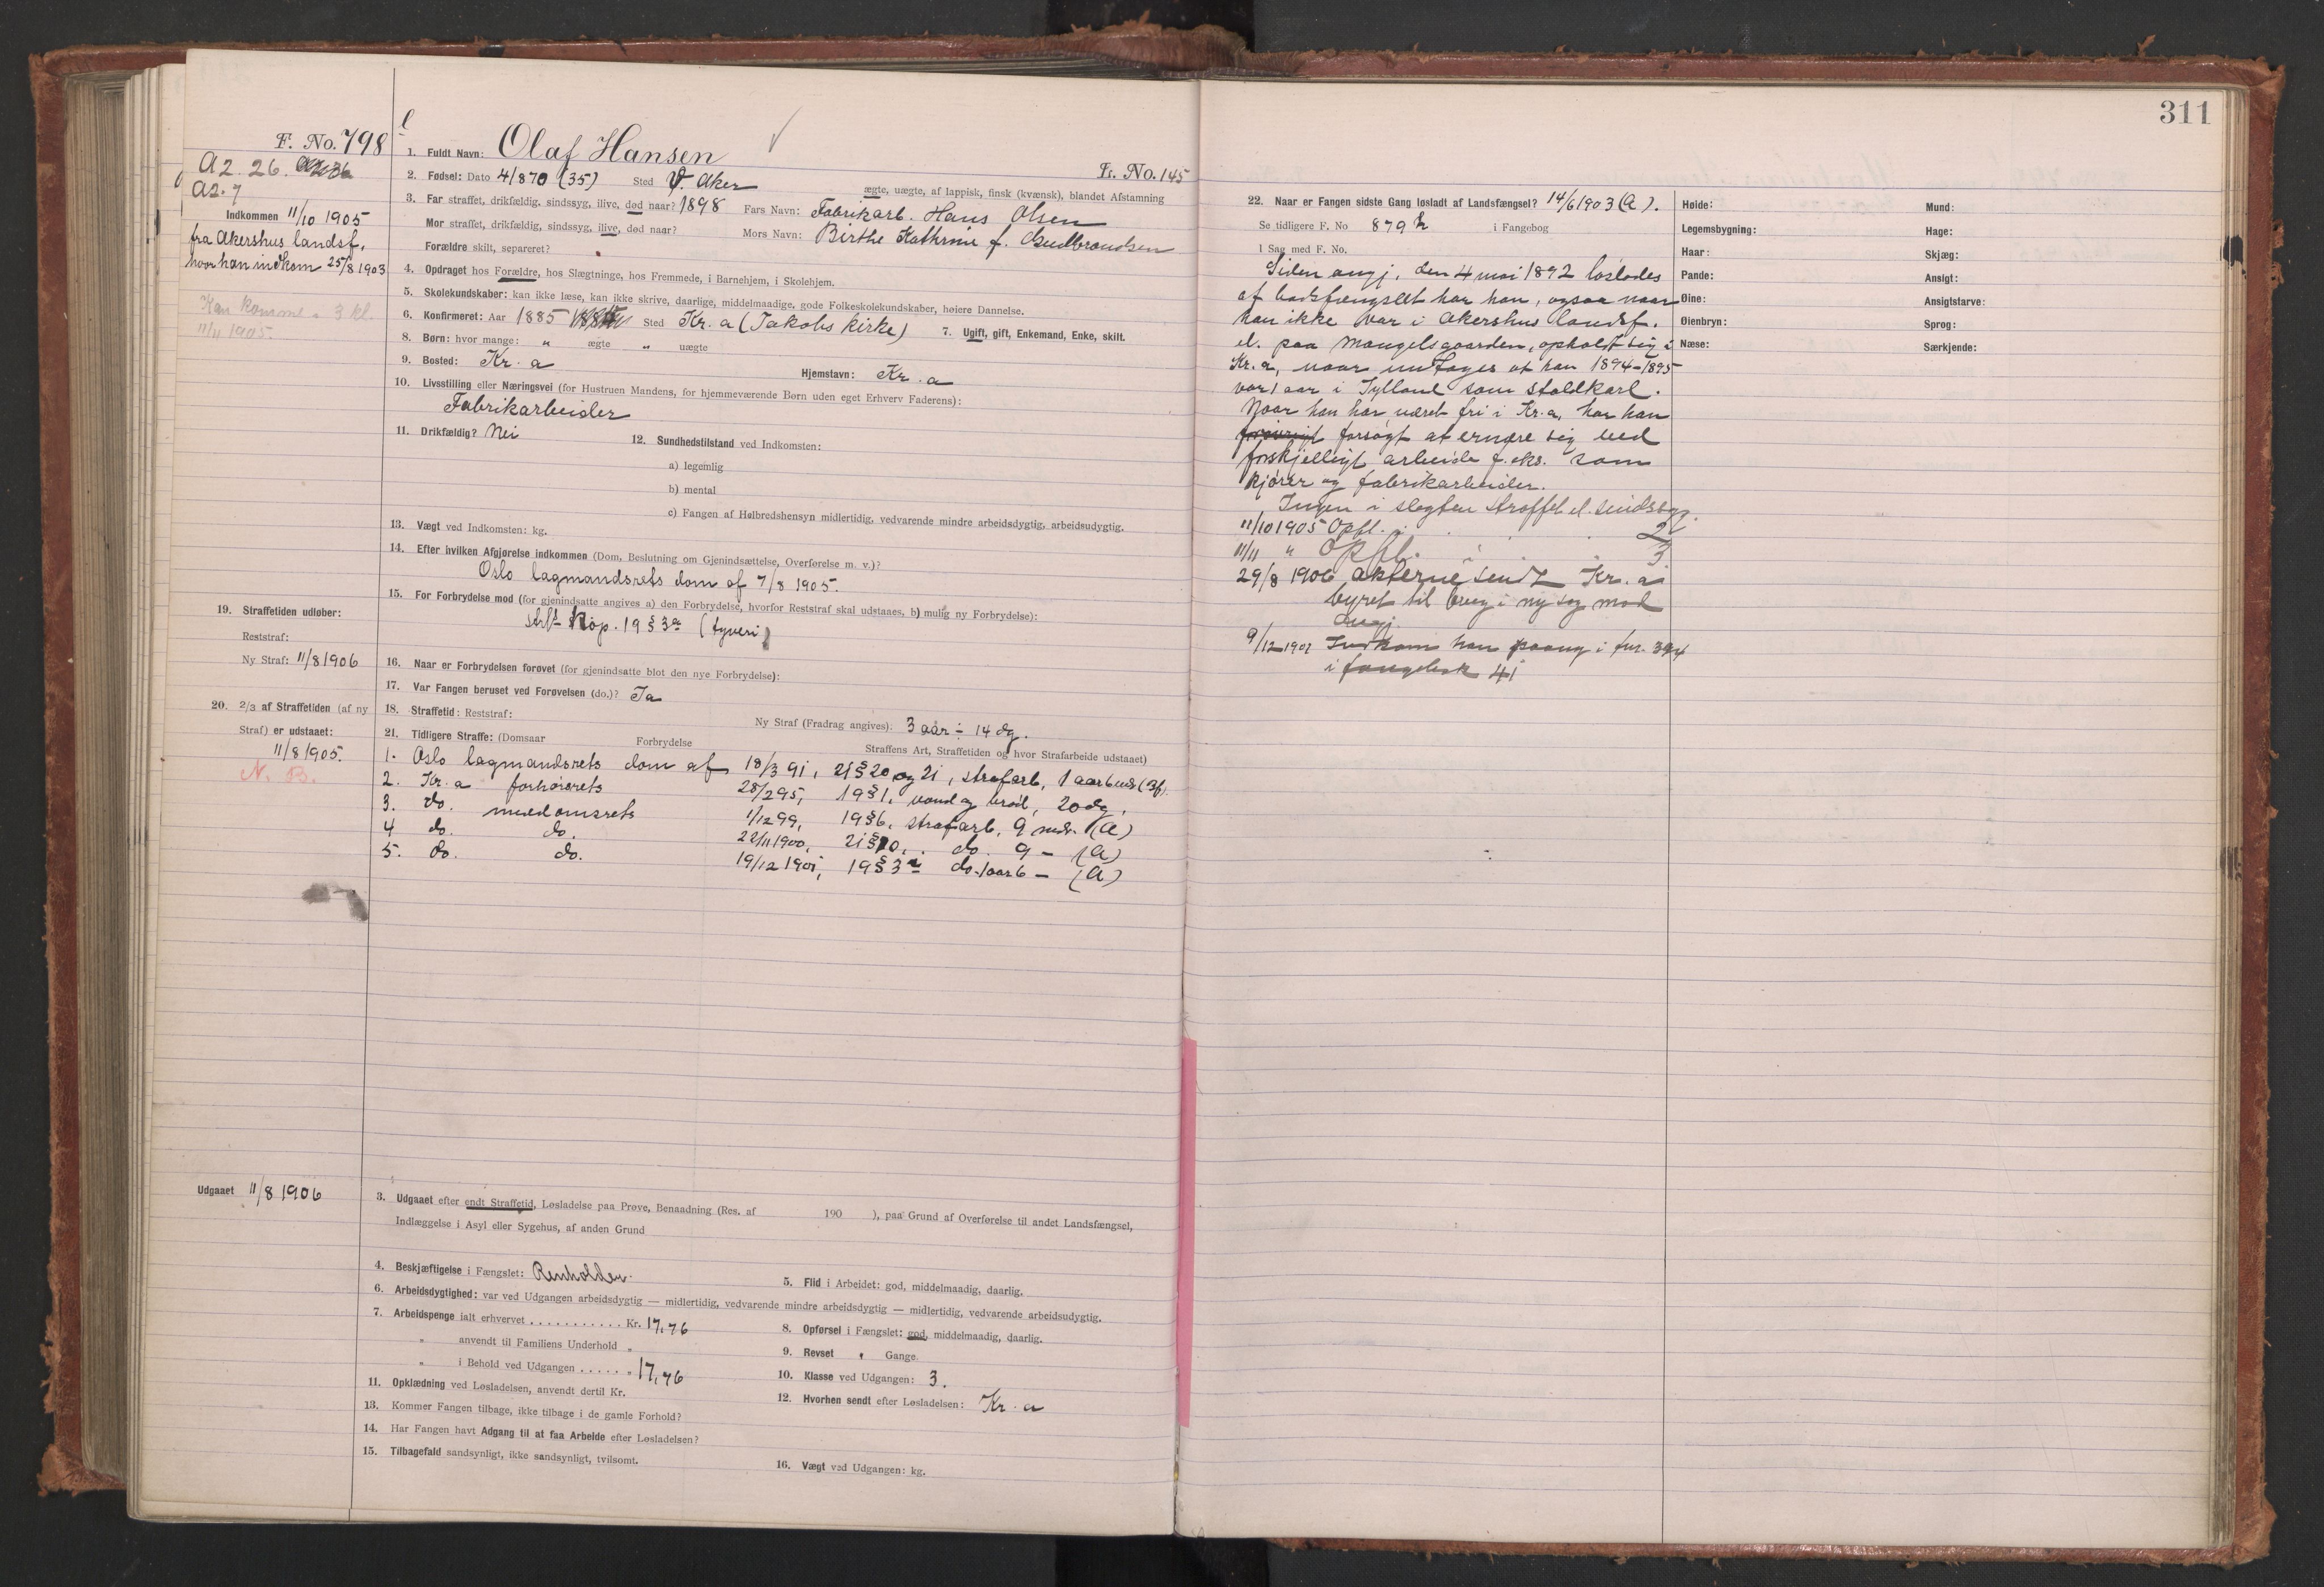 311
F. No. 798 l
A2. 26.
A2. 7
Indkommen 11/10 1905
fra Akershus landsf.
hvor han indkom 25/8 1903
Kan komme i 3 kl.
11/11 1905.
1. Fuldt Navn: Olaf Hansen
Fr. No. 145
2. Fødsel: Dato 4/8 70 (35) Sted V. Aker
ægte, uægte, af lappisk, finsk (kvænsk), blandet Afstamning
3. Far straffet, drikfældig, sindssyg, ilive, død naar? 1898 Fars Navn: Fabrikarb. Hans Olsen
Mor straffet, drikfældig, sindssyg, ilive, død naar? Mors Navn: Birthe Kathrine f. Gudbrandsen
Forældre skilt, separeret?
4. Opdraget hos Forældre, hos Slægtninge, hos Fremmede, i Barnehjem, i Skolehjem.
5. Skolekundskaber: kan ikke læse, kan ikke skrive, daarlige, middelmaadige, gode Folkeskolekundskaber, høiere Dannelse.
6. Konfirmeret: Aar 1885 Sted Kr.a (Jakobs kirke) 7. Ugift, gift, Enkemand, Enke, skilt.
8. Børn: hvor mange: " ægte " uægte
9. Bosted: Kr.a Hjemstavn: Kr.a
10. Livsstilling eller Næringsvei (for Hustruen Mandens, for hjemmeværende Børn uden eget Erhverv Faderens):
Fabrikarbeider
11. Drikfældig? Nei 12. Sundhedstilstand ved Indkomsten:
a) legemlig
b) mental
c) Fangen af Helbredshensyn midlertidig, vedvarende mindre arbeidsdygtig, arbeidsudygtig.
13. Vægt ved Indkomsten: kg.
14. Efter hvilken Afgjørelse indkommen (Dom, Beslutning om Gjenindsættelse, Overførelse m. v.)?
Oslo lagmandsrets dom af 7/8 1905.
15. For Forbrydelse mod (for gjenindsatte angives a) den Forbrydelse, hvorfor Reststraf skal udstaaes, b) mulig ny Forbrydelse):
strfl. kap. 19 § 3 a (tyveri)
16. Naar er Forbrydelsen forøvet (for gjenindsatte blot den nye Forbrydelse):
17. Var Fangen beruset ved Forøvelsen (do.)? Ja
18. Straffetid: Reststraf: Ny Straf (Fradrag angives): 3 aar ÷ 14 dg.
19. Straffetiden udløber:
Reststraf:
Ny Straf: 11/8 1906
20. 2/3 af Straffetiden (af ny
Straf) er udstaaet:
11/8 1905.
N. B.
21. Tidligere Straffe: (Domsaar Forbrydelse Straffens Art, Straffetiden og hvor Strafarbeide udstaaet)
1. Oslo lagmandsrets dom af 18/3 91, 21 § 20 og 21, strafarb. 1 aar 6 mdr. (Bf).
2. Kr.a forhørsrets 28/2 95, 19 § 1, vand og brød, 20 dg.
3. do. meddomsrets 1/12 99, 19 § 6, strafarb. 9 mdr. (A)
4 do. do. 22/11 1900, 21 § 10, do. 9 — (A)
5. do. do. 19/12 1901, 19 § 3 a do. 1 aar 6 — (A)
Udgaaet 11/8 1906
3. Udgaaet efter endt Straffetid, Løsladelse paa Prøve, Benaadning (Res. af 190 ), paa Grund af Overførelse til andet Landsfængsel,
Indlæggelse i Asyl eller Sygehus, af anden Grund
4. Beskjæftigelse i Fængslet: Renholder. 5. Flid i Arbeidet: god, middelmaadig, daarlig.
6. Arbeidsdygtighed: var ved Udgangen arbeidsdygtig — midlertidig, vedvarende mindre arbeidsdygtig — midlertidig, vedvarende arbeidsudygtig.
7. Arbeidspenge ialt erhvervet . . . . . . . . . . . Kr. 17,76 8. Opførsel i Fængslet: god, middelmaadig, daarlig.
" anvendt til Familiens Underhold " 9. Revset " Gange.
" i Behold ved Udgangen . . . . . " 17,76 10. Klasse ved Udgangen: 3.
11. Opklædning ved Løsladelsen, anvendt dertil Kr. 12. Hvorhen sendt efter Løsladelsen: Kr.a
13. Kommer Fangen tilbage, ikke tilbage i de gamle Forhold?
14. Har Fangen havt Adgang til at faa Arbeide efter Løsladelsen?
15. Tilbagefald sandsynligt, ikke sandsynligt, tvilsomt.
16. Vægt ved Udgangen: kg.
22. Naar er Fangen sidste Gang løsladt af Landsfængsel? 14/6 1903 (A).
Se tidligere F. No 879 h i Fangebog
I Sag med F. No.
Siden angj. den 4 mai 1892 løslodes
af bodsfængslet har han, ogsaa naar
han ikke var i Akershus landsf.
el. paa Mangelsgaarden, opholdt sig i
Kr.a, naar undtages at han 1894-1895
var 1 aar i Jylland som staldkarl.
Naar han har været fri i Kr.a, har han
forsøgt at ernære sig ved
forskjelligt arbeide f. eks. som
kjører og fabrikarbeider.
Ingen i slegten straffet el. sindssyg.
11/10 1905 Opfl. i 2
11/11 " Opfl. i 3
29/8 1906 akterne sendt Kr.a
byret til brug i ny sag mod
angj.
9/12 1907 Indkom han paany i fnr. 394
i fangebok 41
Høide:
Legemsbygning:
Haar:
Pande:
Øine:
Øienbryn:
Næse:
Mund:
Hage:
Skjæg:
Ansigt:
Ansigtsfarve:
Sprog:
Særkjende: